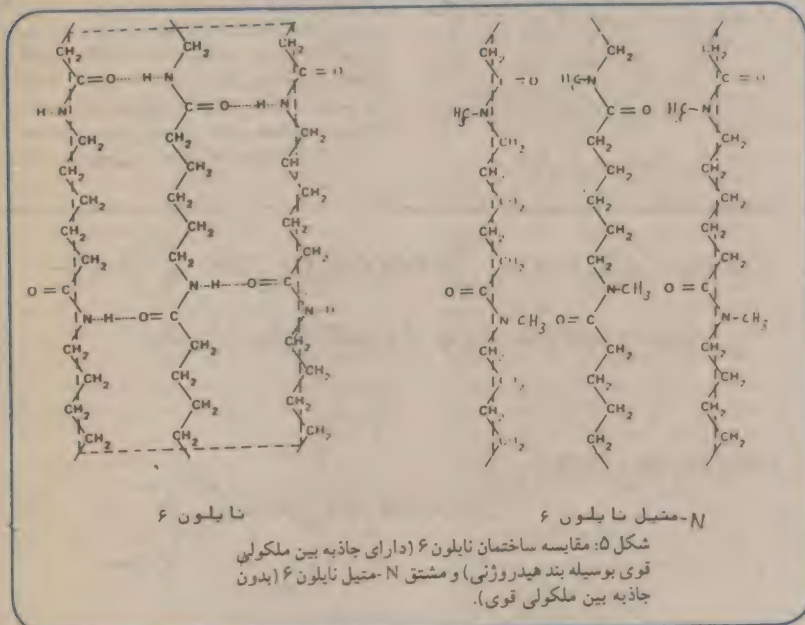 CH₂ CH₂ CH₂
C=O H-N C=O
H-N C=O H-N
CH₂ CH₂ CH₂
CH₂ CH₂ CH₂
CH₂ CH₂ CH₂
CH₂ CH₂ CH₂
CH₂ CH₂ CH₂
O=C N-H O=C
N-H O=C N-H
CH₂ CH₂ CH₂
CH₂ CH₂ CH₂
CH₂ CH₂ CH₂
CH₂ CH₂ CH₂
CH₂ CH₂ CH₂
N C=O
N C=O N
CH₂ CH₂ CH₂
CH₂ CH₂
CH₂ CH₂
CH₂ CH₂
CH₂ CH₂
O=C N-CH₃ O=C
N CH₃ O=C N-CH₃
CH₂ CH₂ CH₂
CH₂ CH₂
CH₂ CH₂
CH₂ CH₂
نایلون ۶
N-متیل نایلون ۶
شکل ۵: مقایسه ساختمان نایلون ۶ (دارای جاذبه بین ملکولی
قوی بوسیله بند هیدروژنی) و مشتق N -متیل نایلون ۶ (بدون
جاذبه بین ملکولی قوی).